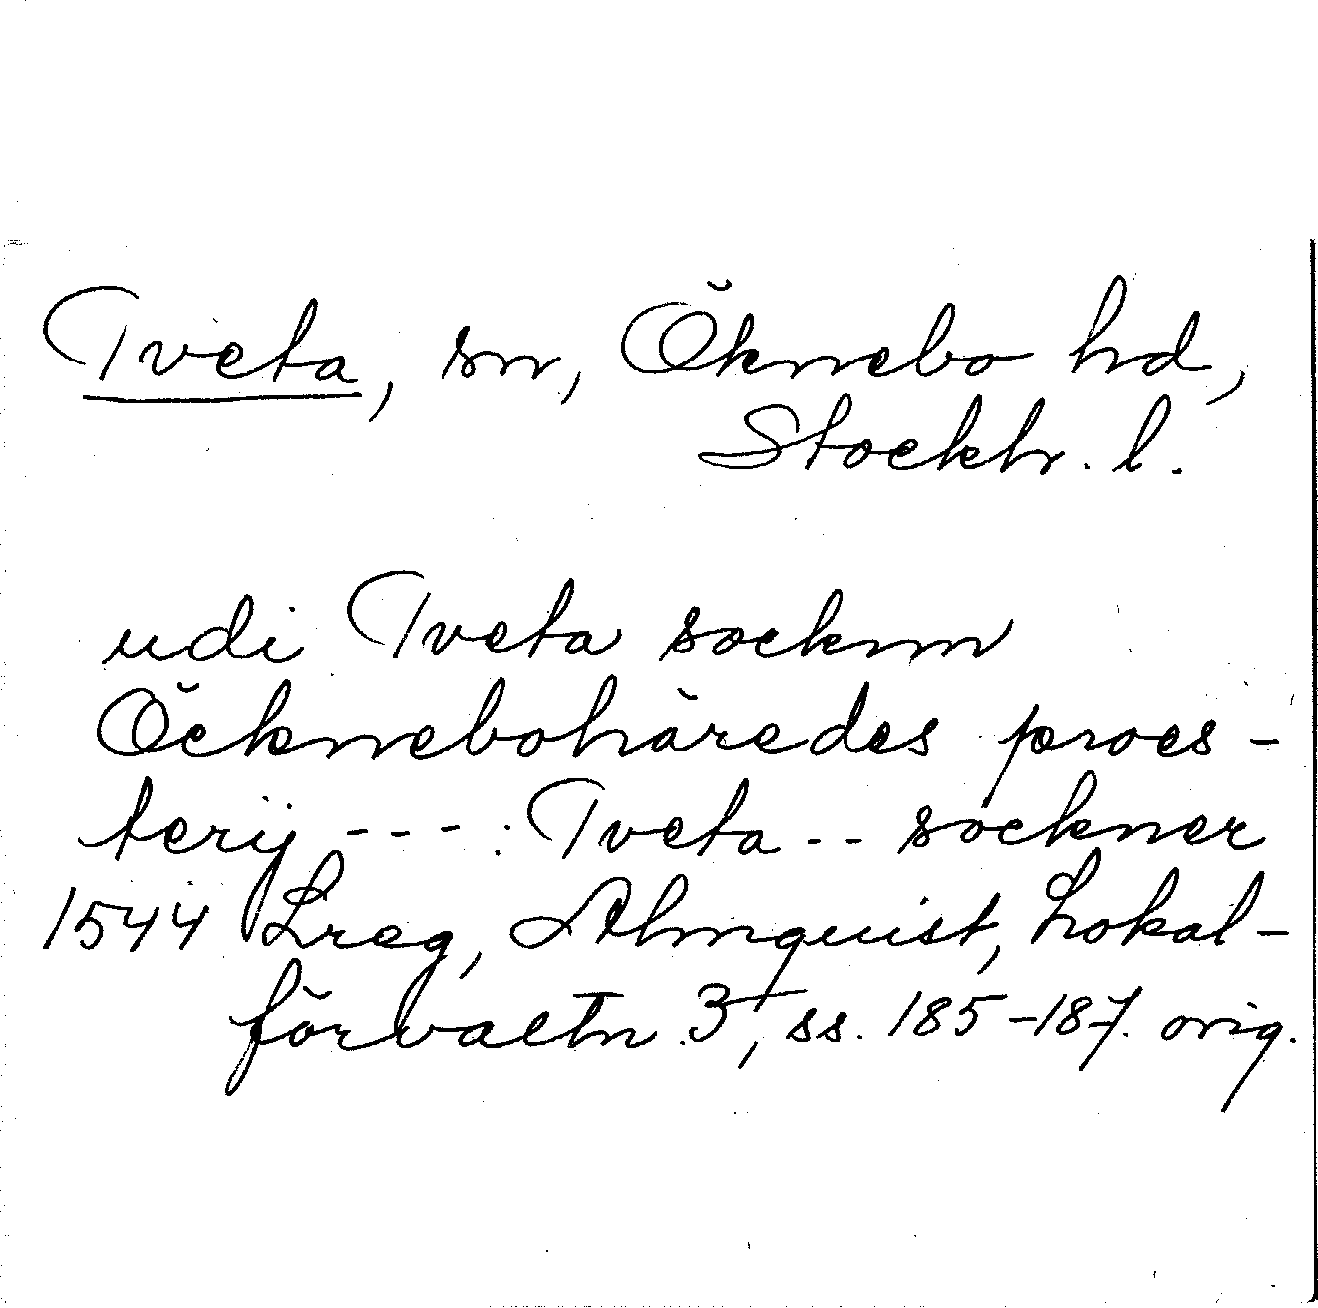 Tveta, sn, Öknebo hd,
Stockh. l.
udi Tveta socknn
Öcknebohäredes proes-
terij ---- Tveta -- sockner
1544 Lreg, Almquist, Lokal-
förvaltn 3, ss. 185-187. orig.